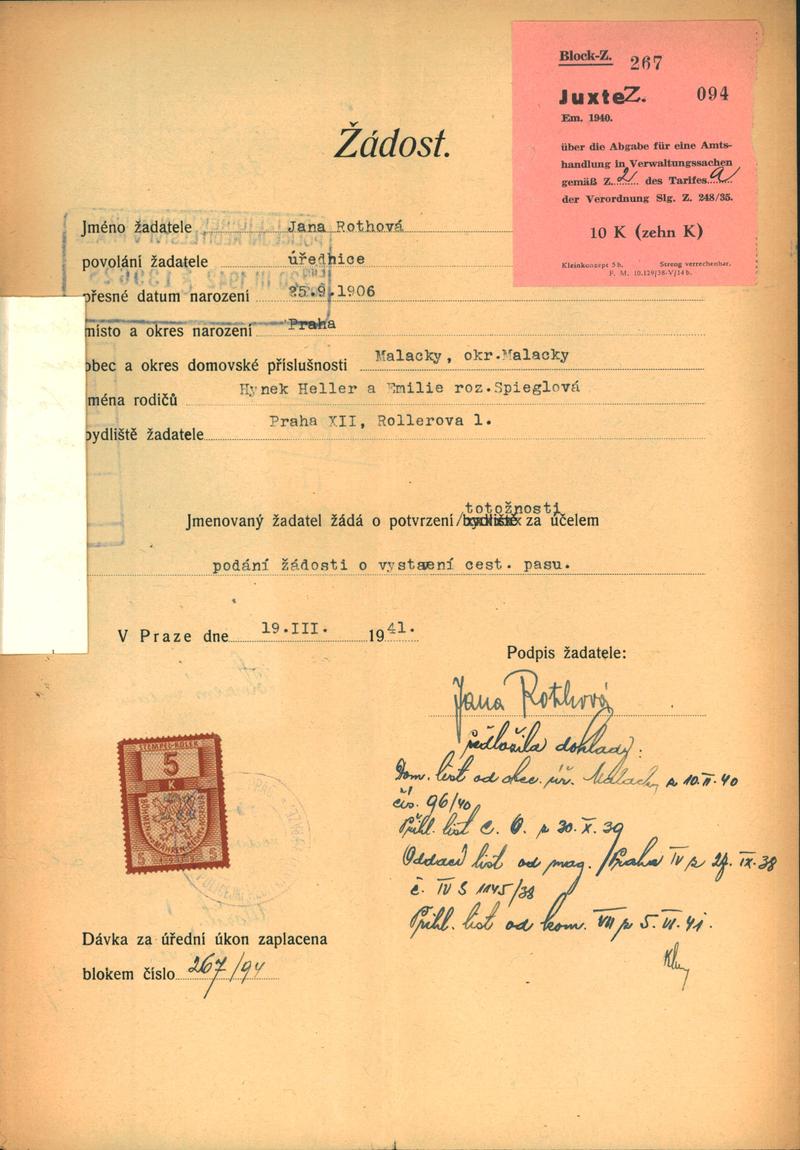 Block-Z. 267
JuxteZ. 094
Em. 1940.
über die Abgabe für eine Amts-
handlung in Verwaltungssachen
gemäß Z. 2 des Tarifes a
der Verordnung Slg. Z. 248/35.
10 K (zehn K)
Kleinkonzept 5 h. Streng verrechenbar.
F. M. 10.129/38-V/14 b.
Žádost.
Jméno žadatele Jana Rothová
povolání žadatele úřednice
přesné datum narození 25.9.1906
místo a okres narození Praha
obec a okres domovské příslušnosti Malacky, okr.Malacky
ména rodičů Hynek Heller a Emilie roz.Spieglová
bydliště žadatele Praha XII, Rollerova 1.
totožnosti
Jmenovaný žadatel žádá o potvrzení/bydliště za účelem
podání žádosti o vystavení cest. pasu.
V Praze dne 19.III. 1941.
Podpis žadatele:
Jana Rothová
předložila doklady:
Dom. list od obec. úř. Malacky z 10.II.40
čís. 96/40
Přihl. list č. O. z 30.X.39
Oddací list od mag. Praha IV z 27.IX.38
č. IV S 1145/38
Přihl. list od kom. VII z 5.VI.41.
STEMPEL-KOLEK
5
K
BÖHMEN u. MÄHREN
5 5
Dávka za úřední úkon zaplacena
blokem číslo 267/94